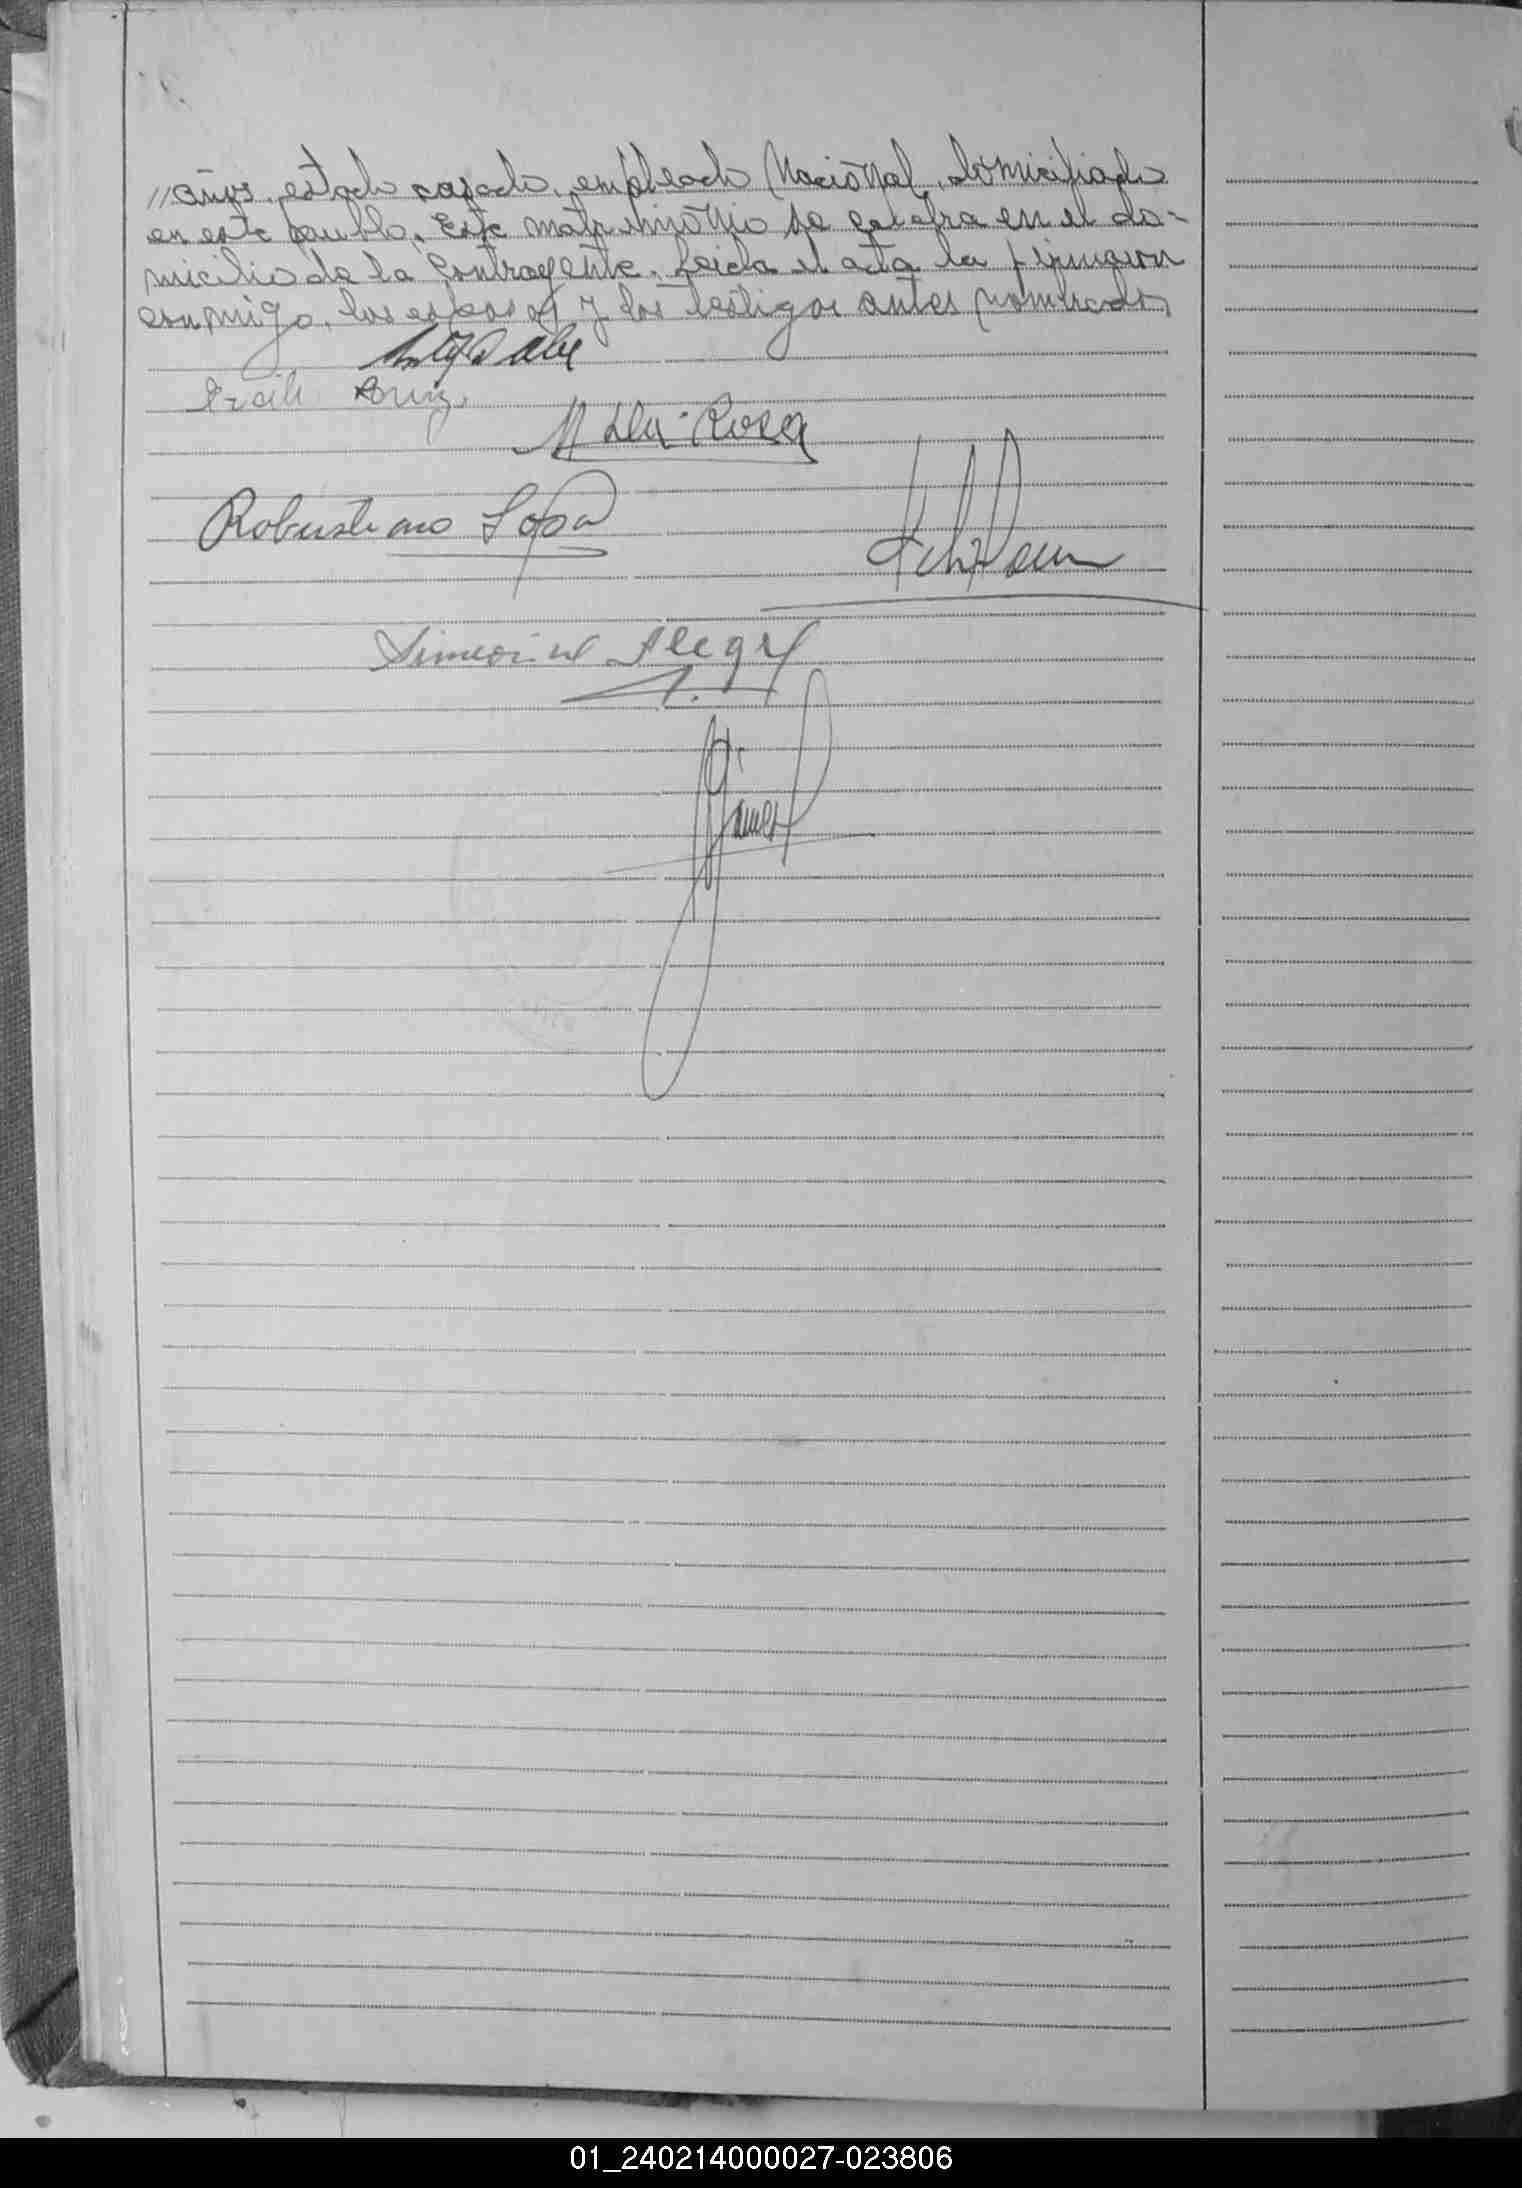 // años, estado casado, empleado Nacional, domiciliado
en este pueblo. Este matrimonio se celebra en el do-
micilio de la contrayente. Leida el acta la firmaron
conmigo, los esposos y los testigos antes nombrados
Ruiz.
Rosa
Robustiano Sosa
Alegre
01_240214000027-023806